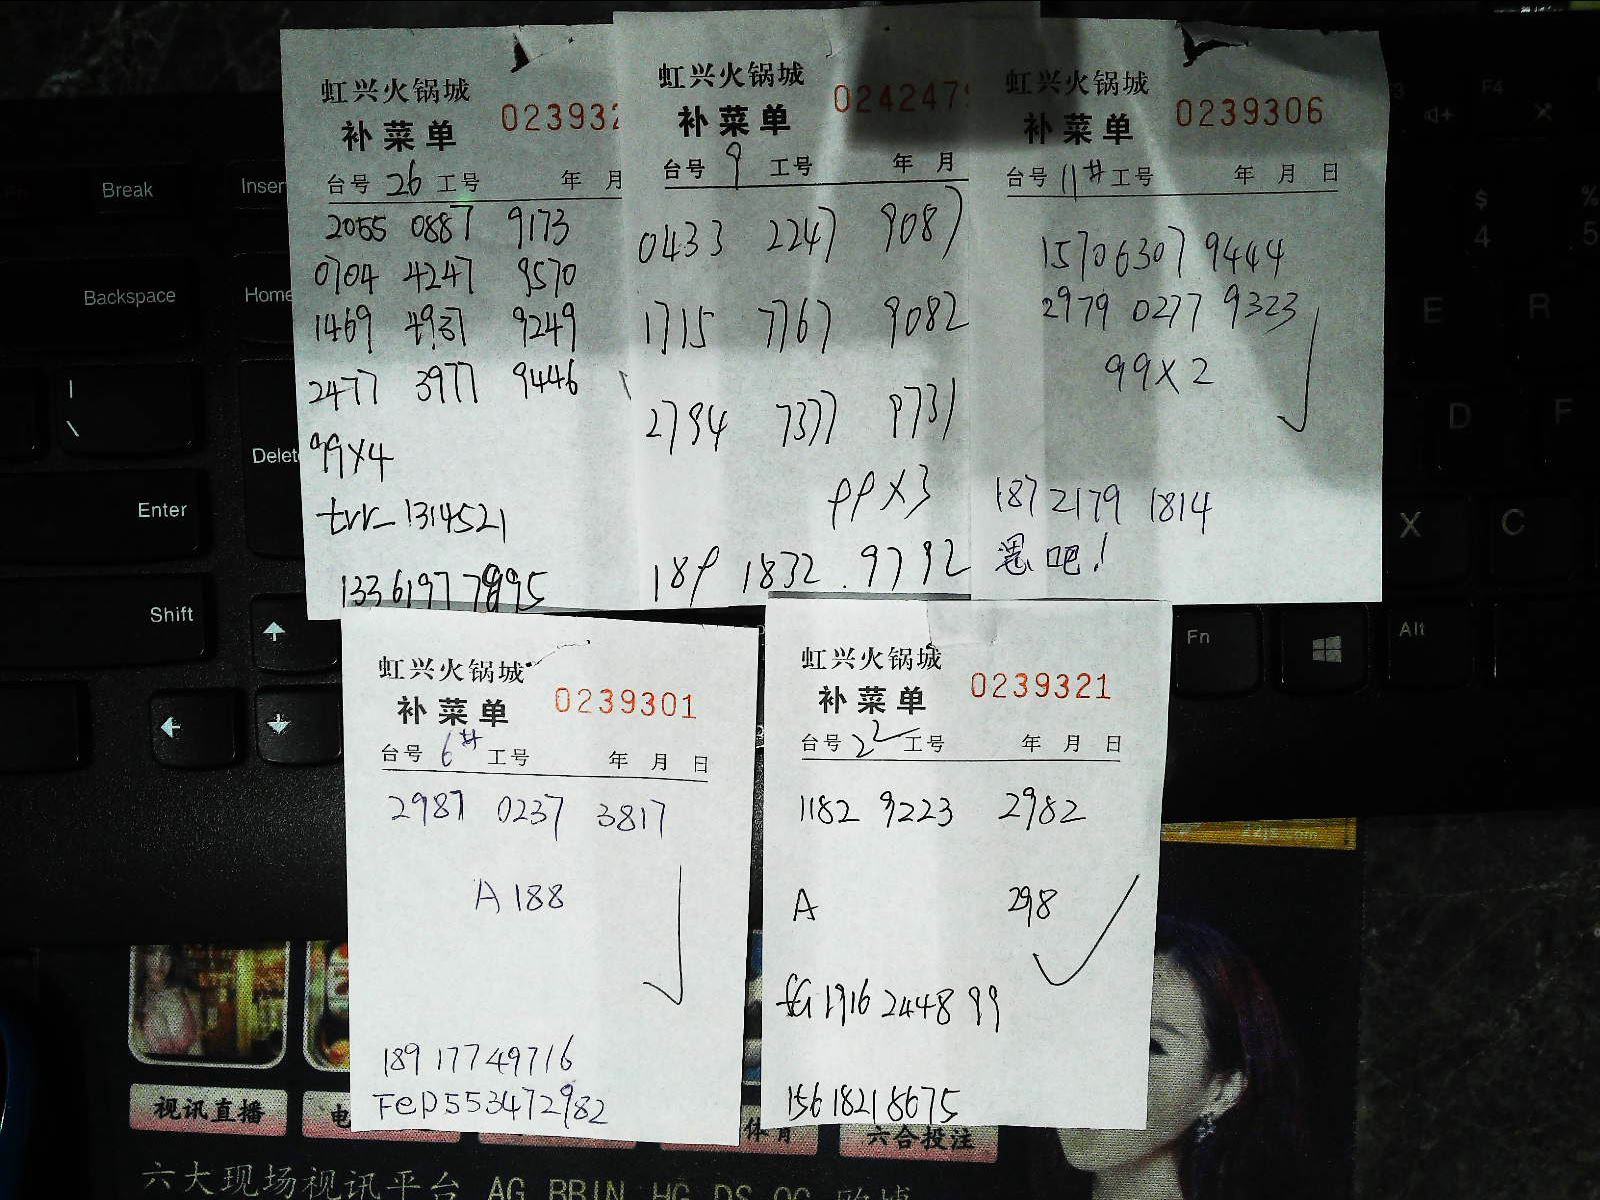 虹兴火锅城
补菜单 023932
台号 26 工号 年 月
2055 0887 9173
0704 4247 9570
1469 4937 9249
2477 3977 9446
99X4
trr_1314521
虹兴火锅城
补菜单 024247
台号 9 工号 年 月
0433 2247 9087
1715 7767 9082
2794 7377 9731
99X3
189 1832 9792
虹兴火锅城
补菜单 0239306
台号 11# 工号 年 月 日
15706307 9444
2979 0277 9323
99X2
187 2179 1814
吧!
虹兴火锅城
补菜单 0239301
台号 6# 工号 年 月 日
2987 0237 3817
A 188
189 17749716
Fep553472982
虹兴火锅城
补菜单 0239321
台号 22 工号 年 月 日
1182 9223 2982
A 298
1916 2448 99
15618218675
Break
Inser
Backspace
Home
Delet
Enter
Shift
F4
$ 4
% 5
E R
D F
X C
Fn
Alt
视讯直播
电
体育
六合投注
六大现场视讯平台 AG BBIN HG DS OG